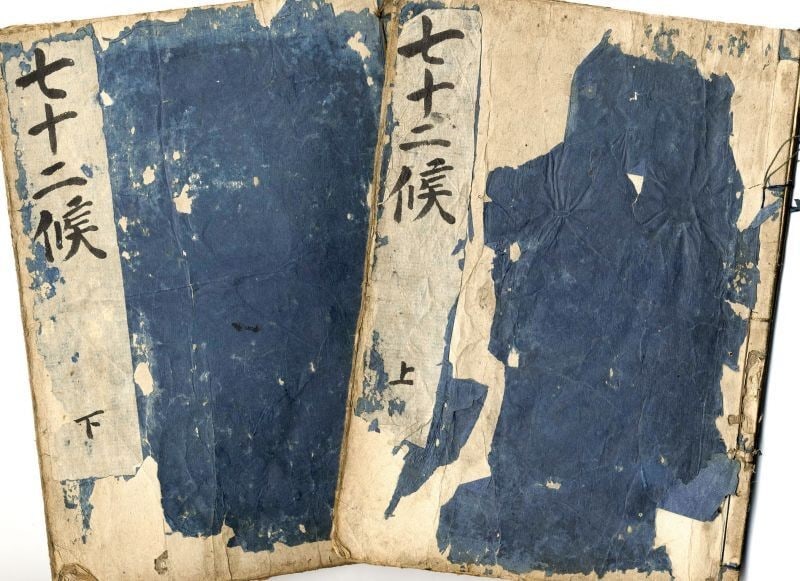 七十二候
下
七十二候
上